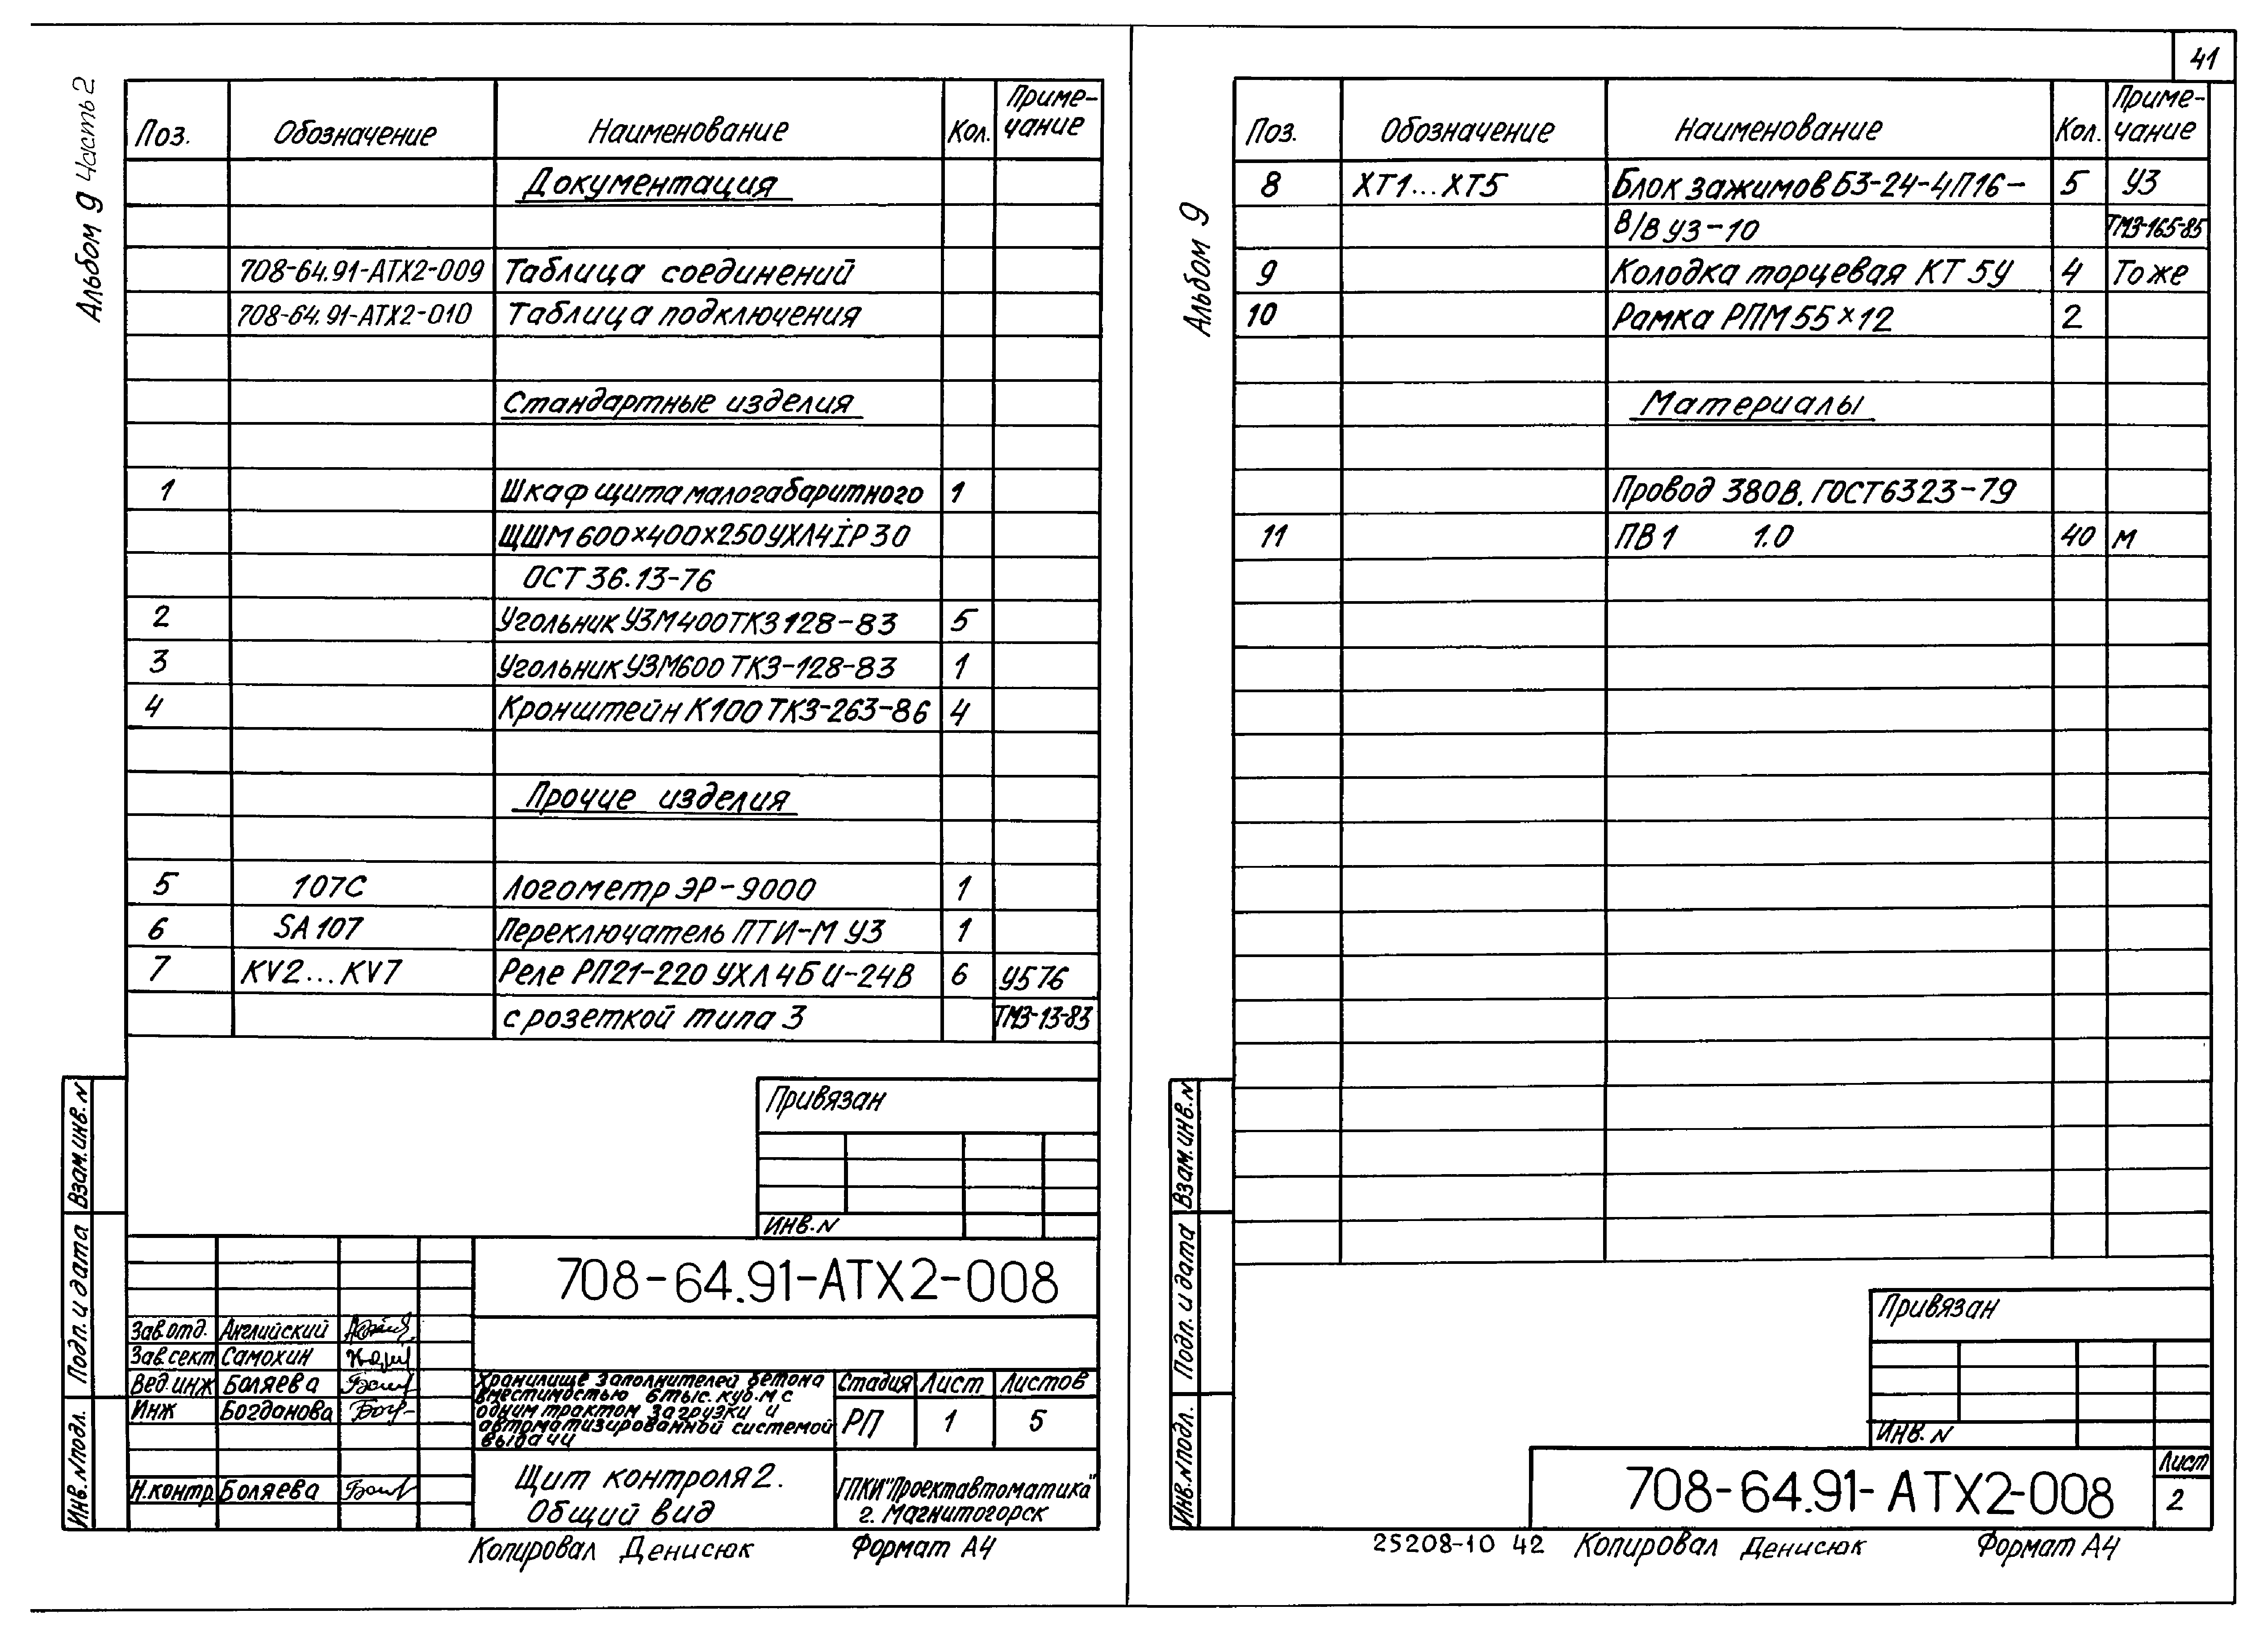 41
Альбом 9 Часть 2
Поз. Обозначение Наименование Кол. Приме-
чание
Документация
708-64.91-АТХ2-009 Таблица соединений
708-64.91-АТХ2-010 Таблица подключения
Стандартные изделия
1 Шкаф щита малогабаритного 1
ЩШМ 600×400×250 УХЛ4 IP30
ОСТ 36.13-76
2 Угольник УЗМ400 ТКЗ 128-83 5
3 Угольник УЗМ600 ТКЗ-128-83 1
4 Кронштейн К100 ТКЗ-263-86 4
Прочие изделия
5 107С Логометр ЭР-9000 1
6 SA107 Переключатель ПТИ-М У3 1
7 KV2...KV7 Реле РП21-220 УХЛ 4Б U-24В 6 У576
с розеткой типа 3 ТМ3-13-83
Привязан
ИНВ. N
Взам. инв. N
Подп. и дата
Инв. N подл.
708-64.91-АТХ2-008
Зав. отд. Английский
Зав. сект. Самохин
Вед. инж Боляева
Инж Богданова
Н. контр. Боляева
Хранилище заполнителей бетона
вместимостью 6 тыс. куб. м с
одним трактом загрузки и
автоматизированной системой
выдачи
Стадия Лист Листов
РП 1 5
Щит контроля 2.
Общий вид
ГПКИ "Проектавтоматика"
г. Магнитогорск
Копировал Денисюк Формат А4
Альбом 9
Поз. Обозначение Наименование Кол. Приме-
чание
8 ХТ1...ХТ5 Блок зажимов БЗ-24-4П16- 5 У3
В/В У3-10 ТМ3-165-85
9 Колодка торцевая КТ 5У 4 То же
10 Рамка РПМ 55×12 2
Материалы
Провод 380В. ГОСТ 6323-79
11 ПВ 1 1.0 40 м
Взам. инв. N
Подп. и дата
Инв. N подл.
Привязан
Инв. N
708-64.91-АТХ2-008
Лист
2
25208-10 42 Копировал Денисюк Формат А4